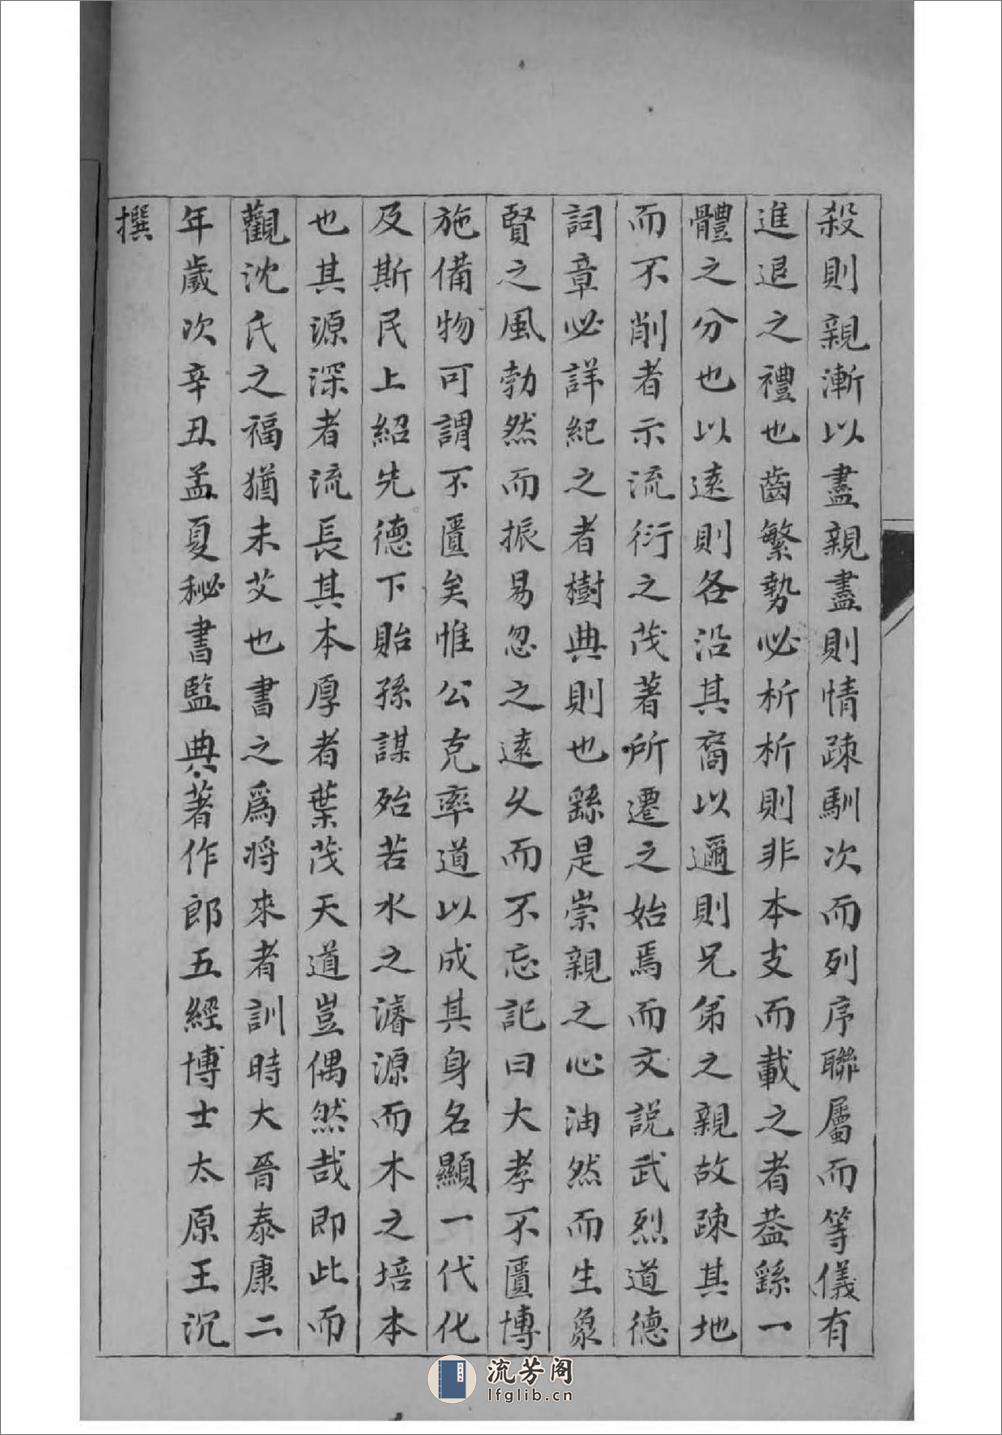 殺則親漸以盡親盡則情疎馴次而列序聯屬而等儀有
進退之禮也齒繁勢必析析則非本支而載之者葢繇一
體之分也以遠則各沿其裔以邇則兄弟之親故疎其地
而不削者示流衍之茂著所遷之始焉而文説武烈道德
詞章必詳紀之者樹典則也繇是崇親之心油然而生象
賢之風勃然而振易忽之遠久而不忘記曰大孝不匱博
施備物可謂不匱矣惟公克率道以成其身名顯一代化
及斯民上紹先德下貽孫謀殆若水之濬源而木之培本
也其源深者流長其本厚者葉茂天道豈偶然哉即此而
觀沈氏之福猶未艾也書之爲将來者訓時大晉泰康二
年歲次辛丑孟夏秘書監典著作郎五經博士太原王沉
撰
流芳阁
lfglib.cn